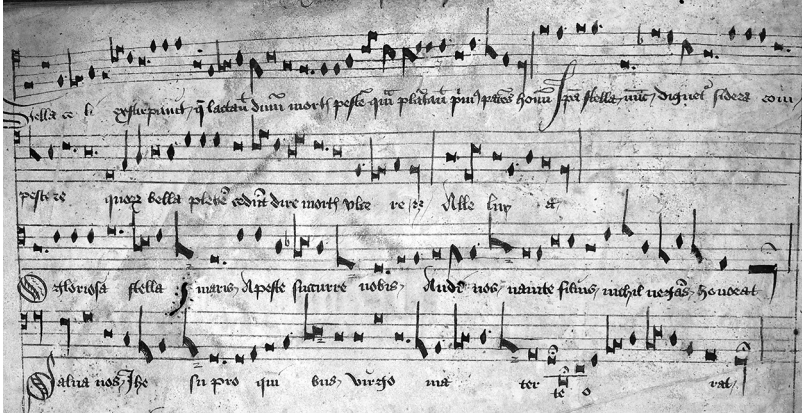 Stella ce li extirpauit q̄ lactauit dn̄m mortꝭ pestē quā plātauit pͥm⁹ parēs hoīm Ipa stella nūc dignet᷑ sidera com
pesce re quoꝝ bella plebē cedūt dire mortꝭ vlce re Alle luy a
O gloriosa stella maris A peste succurre nobis Audi nos nam te filius nichil negās honorat
Salua nos Jhe su pro qui bus virgo ma ter te o rat